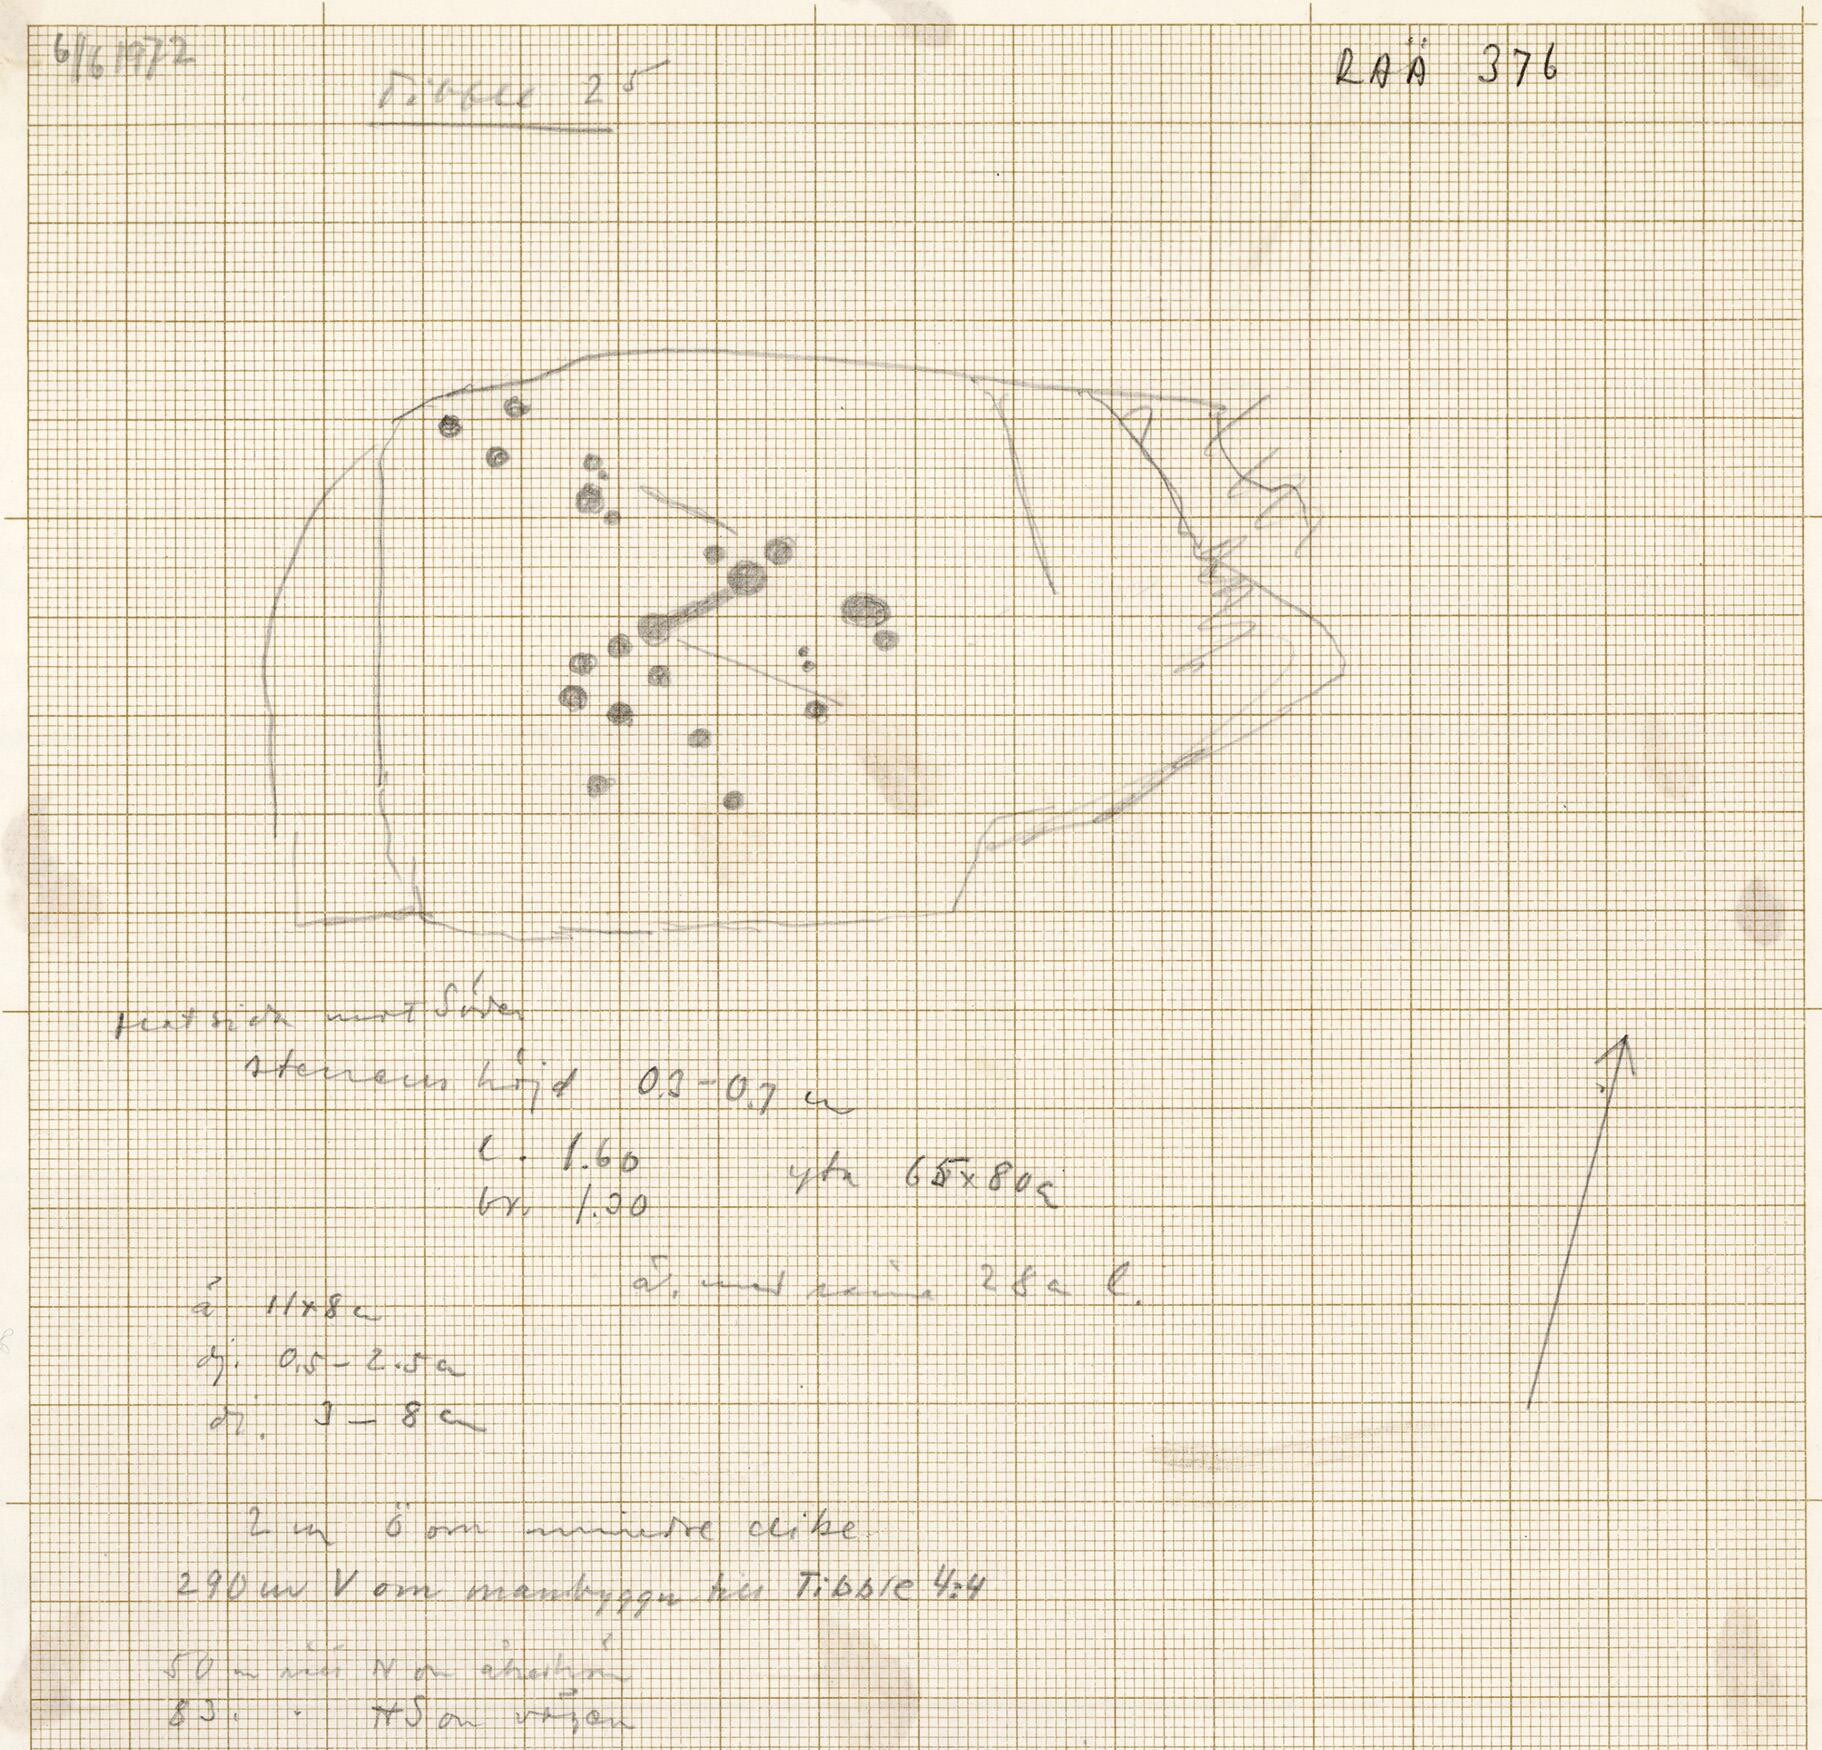 6/6 1972
RAÄ 376
Tibble 25
mot Söder
stenens höjd 0.3-0.7 m
l. 1.60
br. 1.30
yta 65x80
28 l.
11x8
dj. 0.5-2.5
3-8 cm
2 m Ö om mindre dike
290 m V om manbyggn till Tibble 4:4
50 m N om åkerhörn
83. S om vägen